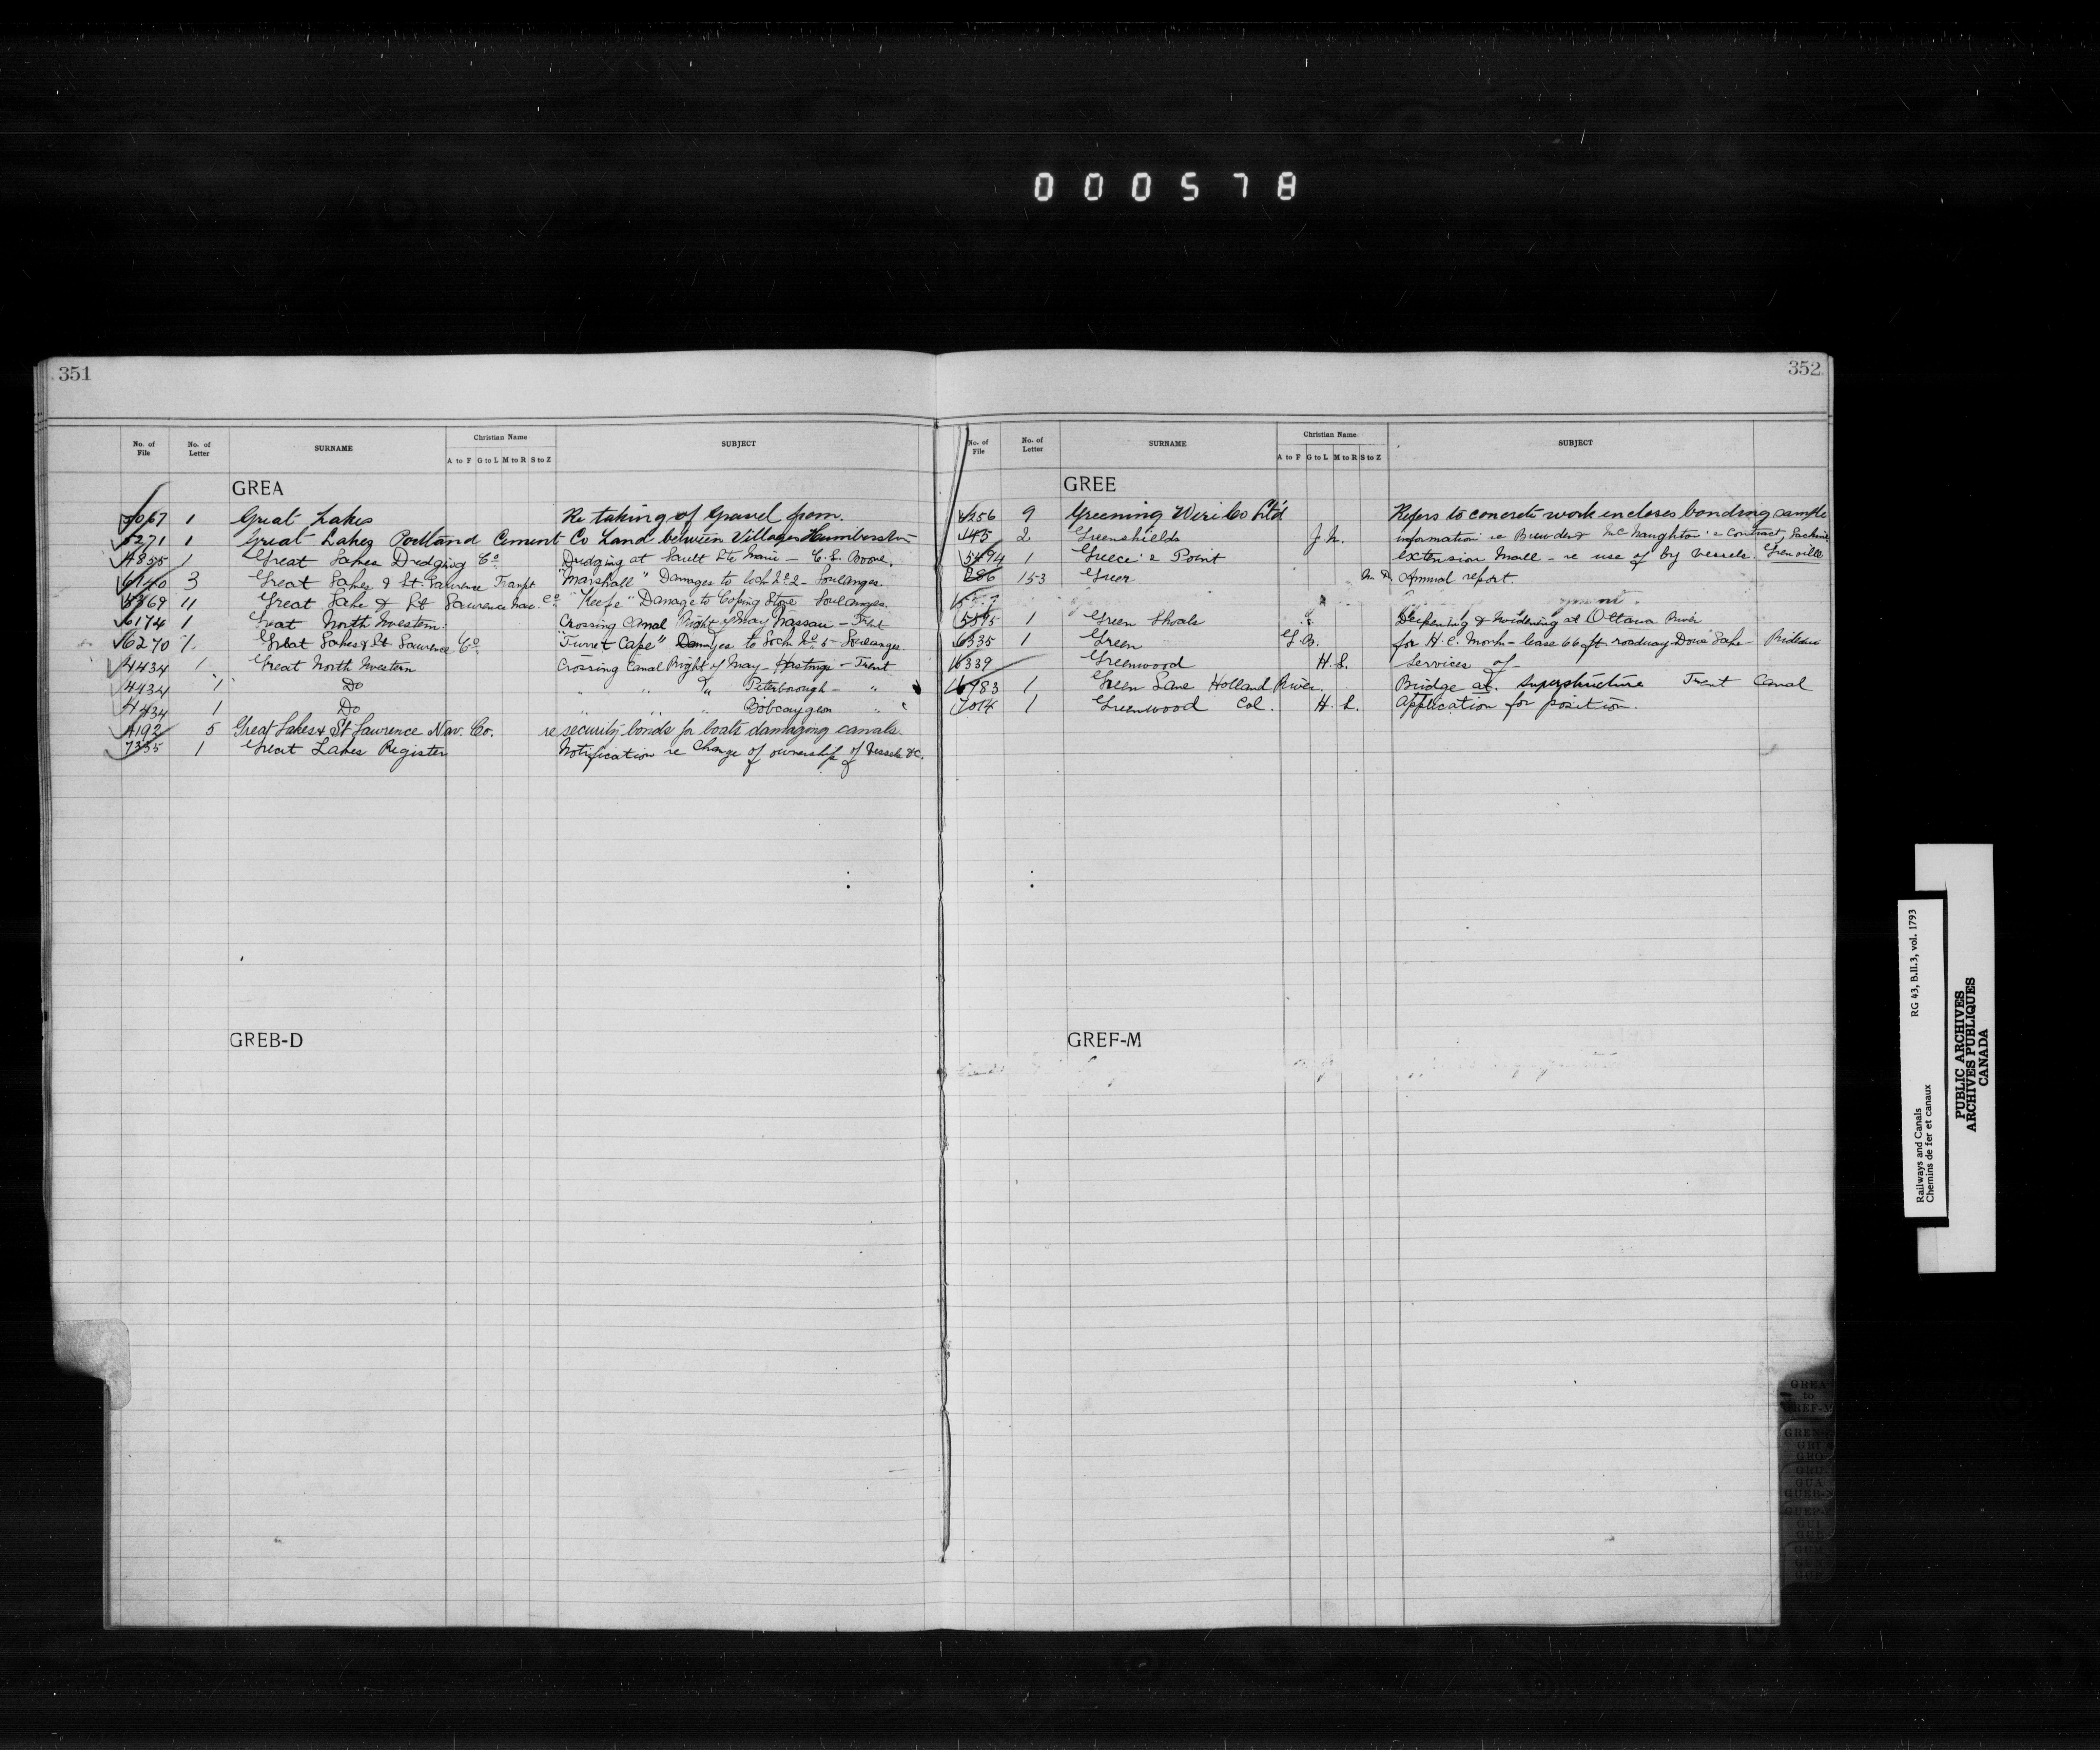 000578
351
No. of File No. of Letter SURNAME Christian Name A to F G to L M to R S to Z SUBJECT
GREA
5067 1 Great Lakes Re taking of Gravel from.
5271 1 Great Lakes Portland Cement Co Land between Villages Humberston
4855 1 Great Lakes Dredging Co Dredging at Sault Ste Marie - C. L. Boone.
6140 3 Great Lakes & St. Lawrence Transpt "Marshall" Damages to lock No 2 - Soulanges.
5369 11 Great Lake & St Lawrence Nav. Co. "Keefe" Damage to Coping Stone Soulanges.
6174 1 Great North Western Crossing Canal Right of Way Nassau - Trent
6270 1 Great Lakes & St Lawrence Co "Turret Cape" Damages to Lock No 5 - Soulanges.
4434 1 Great North Western Crossing Canal Right of Way - Hastings - Trent
4434 1 Do " " " Peterborough - "
4434 1 Do " " " Bobcaygeon "
4192 5 Great Lakes & St Lawrence Nav. Co. re security bonds for boats damaging canals.
7335 1 Great Lakes Register Notification re Change of ownership of Vessels &c.
GREB-D
352
No. of File No. of Letter SURNAME Christian Name A to F G to L M to R S to Z SUBJECT
GREE
4256 9 Greening Wire Co Ltd Refers to concrete work encloses bonding sample
145 2 Greenshields J. N. information re Bruwder & McNaughton's Contract,
5494 1 Greece's Point extension Wall - re use of by vessels. Grenville
286 153 Greer Annual report
5595 1 Green Shoals Deepening & Widening at Ottawa River
6335 1 Green G. B. for H. C. Monk - lease 66 ft. roadway Dows Lake Rideau
6339 Greenwood H. S. Services of -
6983 1 Green Lane Holland River. Bridge at. superstructure Trent Canal
7014 1 Greenwood Col. H. L. Application for position.
GREF-M
GREA
to
GREF-M
GREN-
GRI
GRO
GRU
GUA
GUEP-Z
GUI
GUL
GUM
GUN
GUP
Railways and Canals RG 43, B.II.3, vol. 1793
Chemins de fer et canaux
PUBLIC ARCHIVES
ARCHIVES PUBLIQUES
CANADA